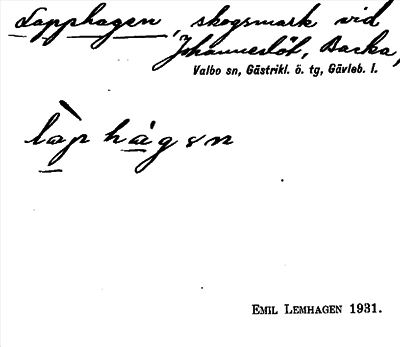 Lapphagen, skogsmark vid
Johanneslöt, Backa,
Valbo sn, Gästrikl. ö. tg, Gävleb. l.
làp hágsn
EMIL LEMHAGEN 1931.